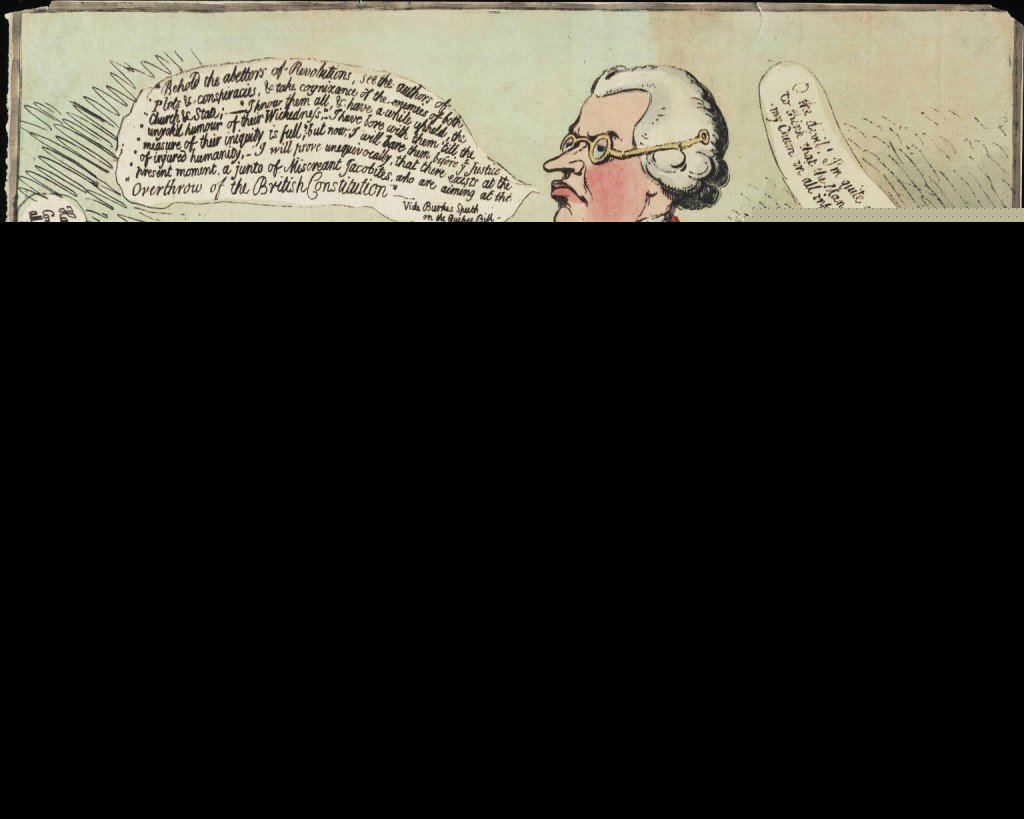 "Behold the abettors of Revolutions, see the authors of
"Plots & conspiracies, & take cognizance of the enemies of both
"Church & State; — "I know them all, & have a while upheld the
"unyok'd humour of their Wickedness": I have bore with them till the
"measure of their iniquity is full; but now, I will bare them before ye Justice
"of injured humanity, — I will prove unequivocally, that there exists at the
"present moment, a junto of Miscreant Jacobites, who are aiming at the
Overthrow of the British Constitution"
Vide Burkes Speech
on the Quebec Bill —
O the devil! I'm quite
to think that the Man
my Crown on all